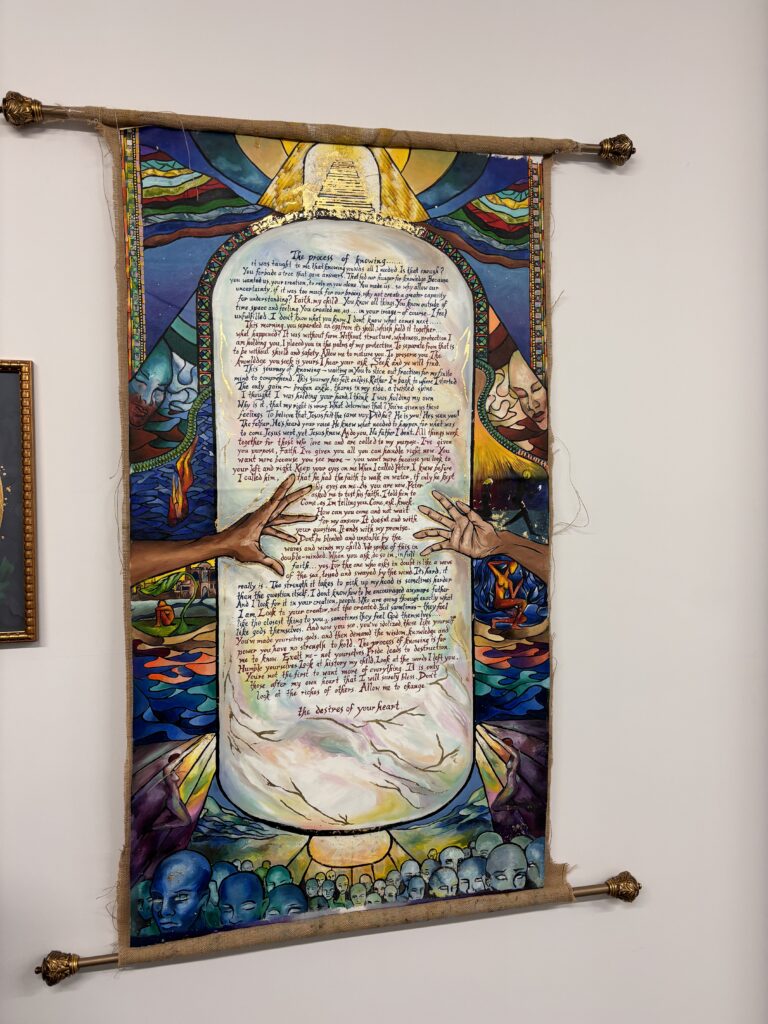 The process of knowing......
it was taught to me that knowing you was all I needed. Is that enough?
You forbade a tree that gave answers. That fed our hunger for knowledge. Because
you wanted us, your creation, to rely on you alone. You made us.. so why allow our
uncertainty. if it was too much for our brains, why not create a greater capacity
for understanding? Faith, my child. You know all things. You know outside of
time space and feeling. You created me, us .... in your image - of course. I feel
unfulfilled. I don't know what you know. I don't know what comes next....
This morning, you separated an egg from its shell, which held it together.
what happened? It was without form. Without structure, wholeness, protection. I
am holding you, I placed you in the palms of my protection. To separate from that is
to be without shield and safety. Allow me to mature you. To preserve you. The
knowledge you seek is yours. I hear your ask. Seek and you will find.
This journey of knowing - waiting on You to slice out fractions for my finite
mind to comprehend. This journey has felt endless. Rather I'm back to where I started
The only gain - broken ankle, thorns in my side, a twisted spine.
I thought I was holding your hand. I think I was holding my own
Why is it, that my right is wrong. What determines that? You've given us these
feelings. To believe that Jesus felt the same way. Did he? He is you! He's seen you!
The father. He's heard your voice. He knew what needed to happen, for what was
to come. Jesus wept, yet Jesus knew. As do you. No father I don't. All things work
together for those who love me and are called to my purpose. I've given
you purpose, Faith. I've given you all you can handle right now. You
want more because you see more - you want more because you look to
your left and right. Keep your eyes on me. When I called Peter, I knew before
I called him, that he had the faith to walk on water, if only he kept
his eyes on me. As you are now, Peter
asked me to test his faith. I told him to
Come, as I'm telling you. Come, ask, knock.
How can you come and not wait
for my answer. It doesn't end with
your question. It ends with my promise.
Don't be blinded and unstable by the
waves and winds my child. We spoke of this in
double-minded. When you ask, do so in in full
faith... yes, for the one who asks in doubt is like a wave
of the sea, tossed and swayed by the wind. It's hard, it
really is. The strength it takes to pick up my head is sometimes harder
than the question itself. I don't know how to be encouraged anymore father
And I look for it in your creation, people. Who are going through exactly what
I am. Look to your creator, not the created. But sometimes - they feel
like the closest thing to you, sometimes they feel God themselves...
like gods themselves. And now you see, you've idolized those like yourself
You've made yourselves gods, and then demand the wisdom, knowledge and
power you have no strength to hold. The process of knowing is for
me to know. Exalt me - not yourselves. Pride leads to destruction
Humble yourselves. Look at history my child. Look at the words I left you.
You're not the first to want more of everything. It is only
those after my own heart that I will surely bless. Don't
look at the riches of others. Allow me to change
the desires of your heart